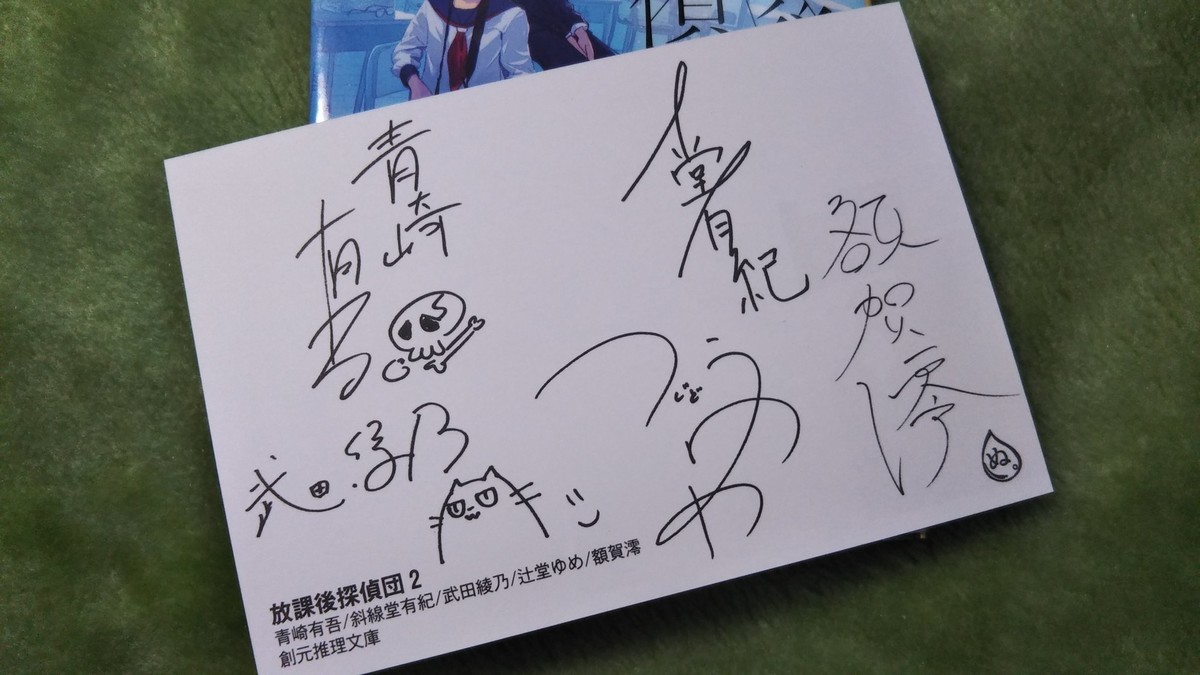 偵
青崎
有吾
堂有紀
額賀澪
武田綾乃
つじどう
ゆめ
ぬ。
放課後探偵団 2
青崎有吾/斜線堂有紀/武田綾乃/辻堂ゆめ/額賀澪
創元推理文庫